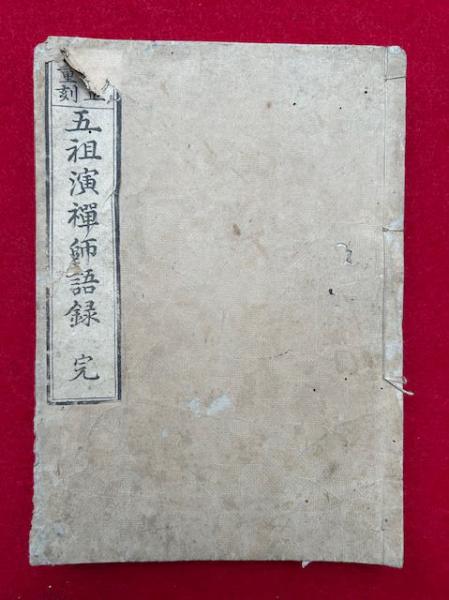 重刻
五祖演禪師語録 完